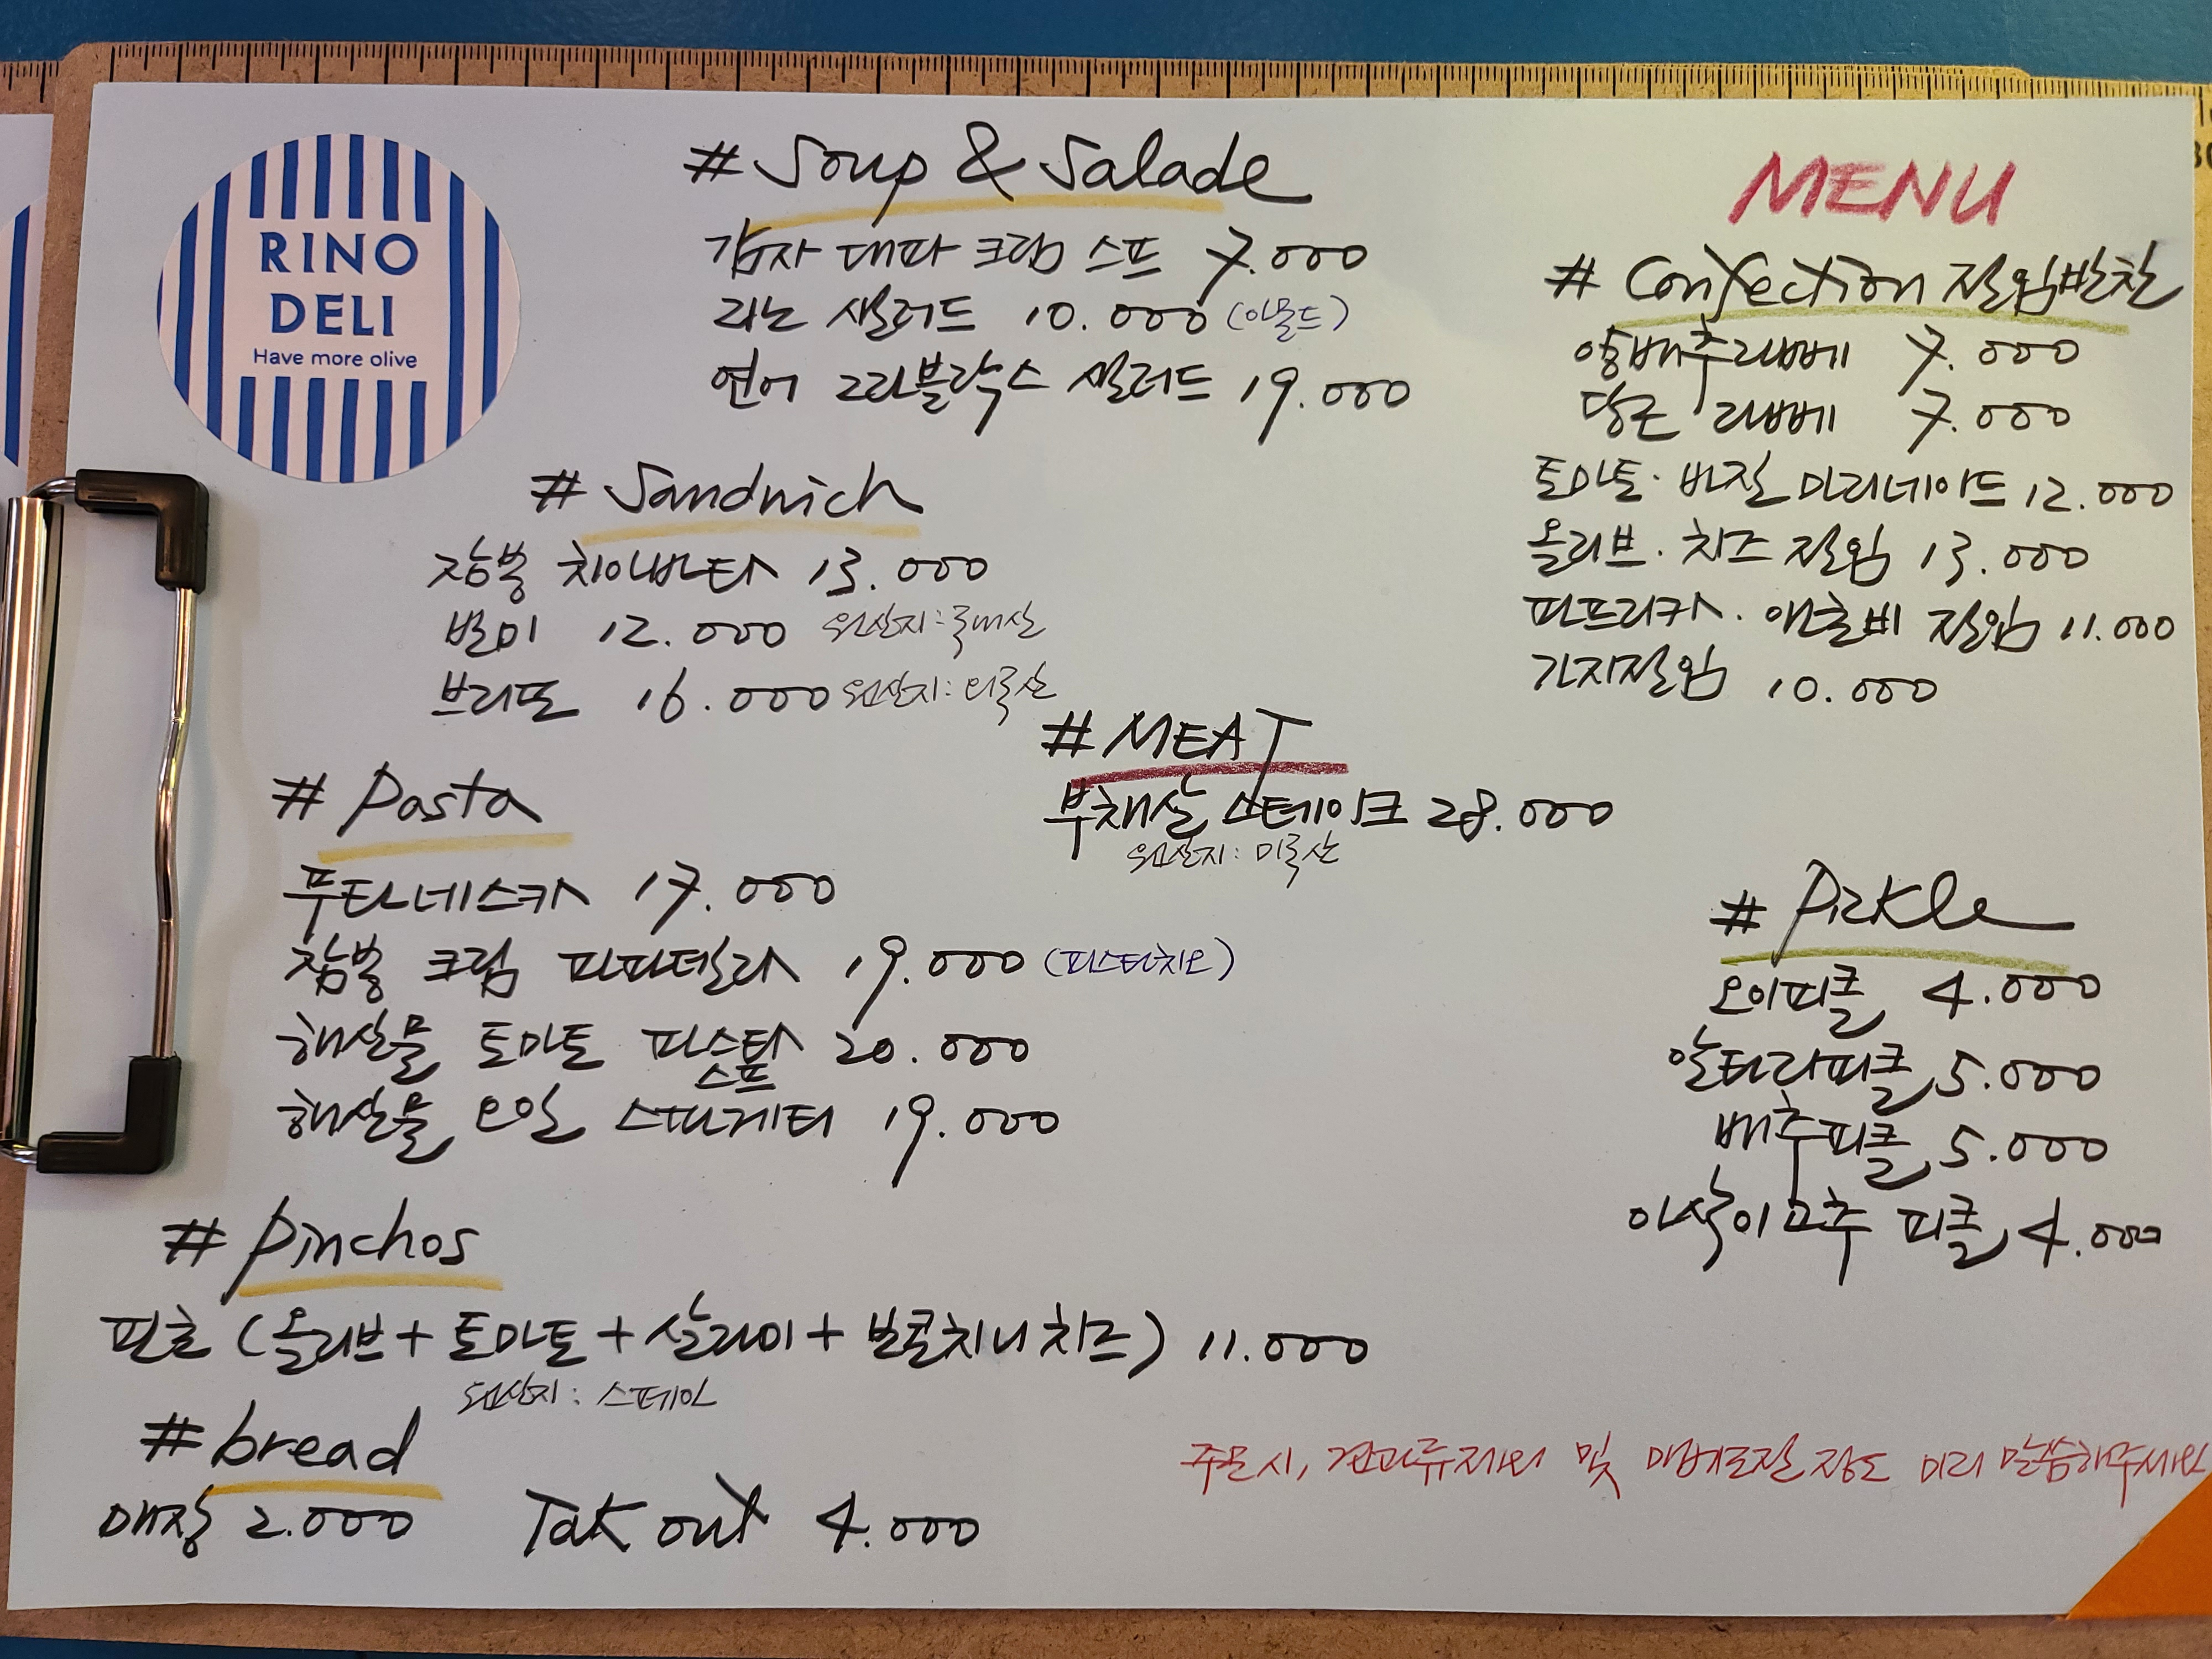 RINO
DELI
Have more olive
# Soup & Salade
감자 대파 크림 스프 7.000
리노 샐러드 10.000 (아몬드)
연어 그라블락스 샐러드 19.000
# Sandwich
잠봉 치아바타 13.000
별미 12.000 원산지: 국내산
브리또 16.000 원산지: 미국산
# Pasta
푸타네스카 17.000
잠봉 크림 파파델라 19.000 (피스타치오)
해산물 토마토 파스타 20.000
스프
해산물 오일 스파게티 19.000
# pinchos
핀초 (올리브 + 토마토 + 살라미 + 보콘치니 치즈) 11.000
원산지: 스페인
# bread
매장 2.000 Tak out 4.000
# MEAT
부채살 스테이크 28.000
원산지: 미국산
MENU
# Confection 절임반찬
양배추라뻬 7.000
당근 라뻬 7.000
토마토·바질 마리네이드 12.000
올리브·치즈 절임 13.000
파프리카·앤초비 절임 11.000
가지절임 10.000
# Pickle
오이피클 4.000
알타리피클 5.000
배추피클 5.000
아삭이고추 피클 4.000
주문시, 견과류제외 및 맵기조절 정도 미리 말씀해주세요